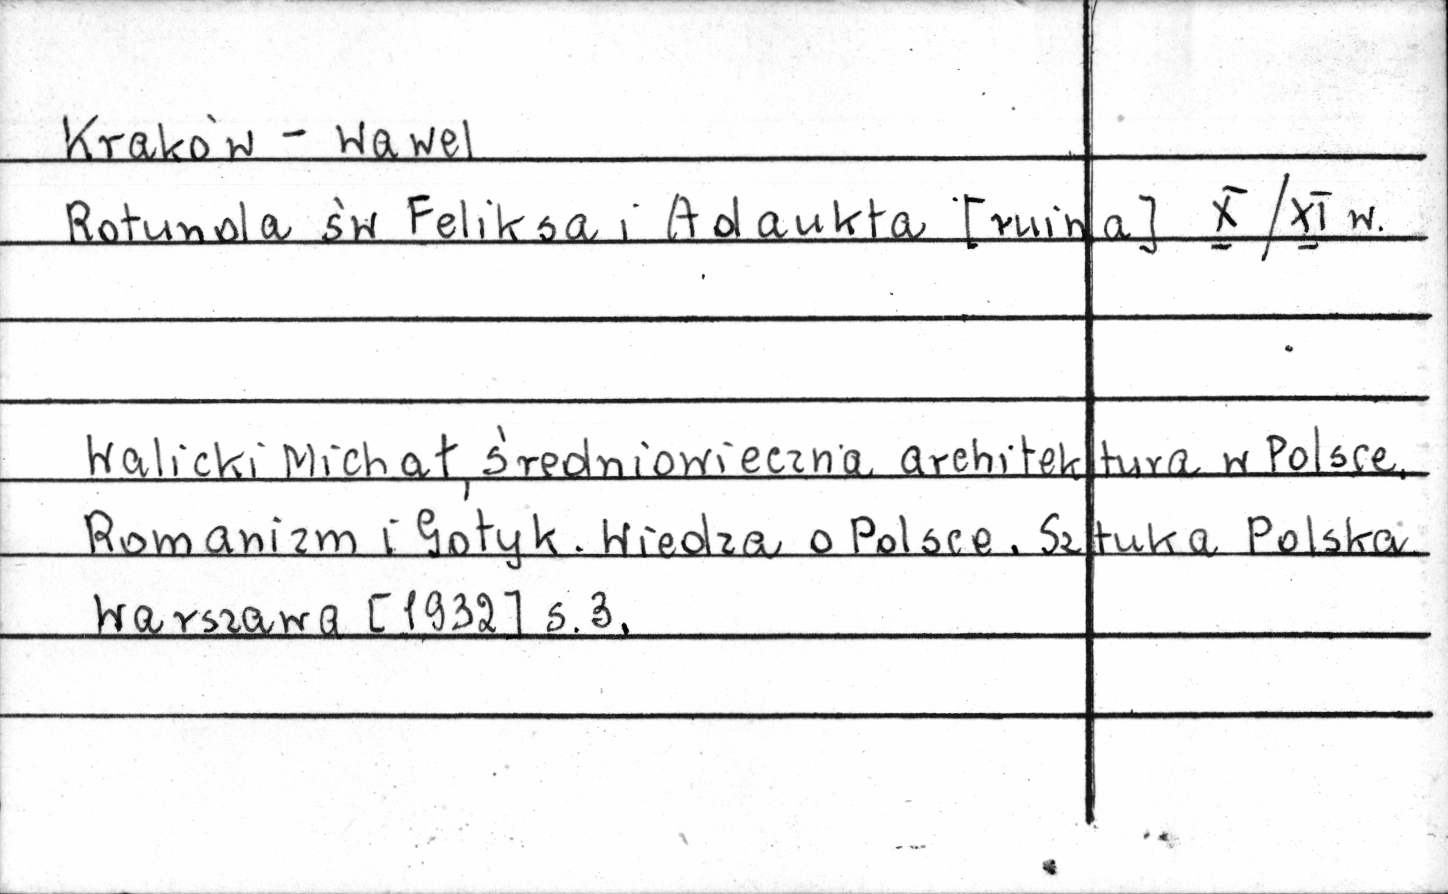 Kraków - Wawel
Rotunda św Feliksa i Adaukta [ruina] X/XI w.
Walicki Michał, Średniowieczna architektura w Polsce.
Romanizm i Gotyk. Wiedza o Polsce. Sztuka Polska
Warszawa [1932] s. 3.